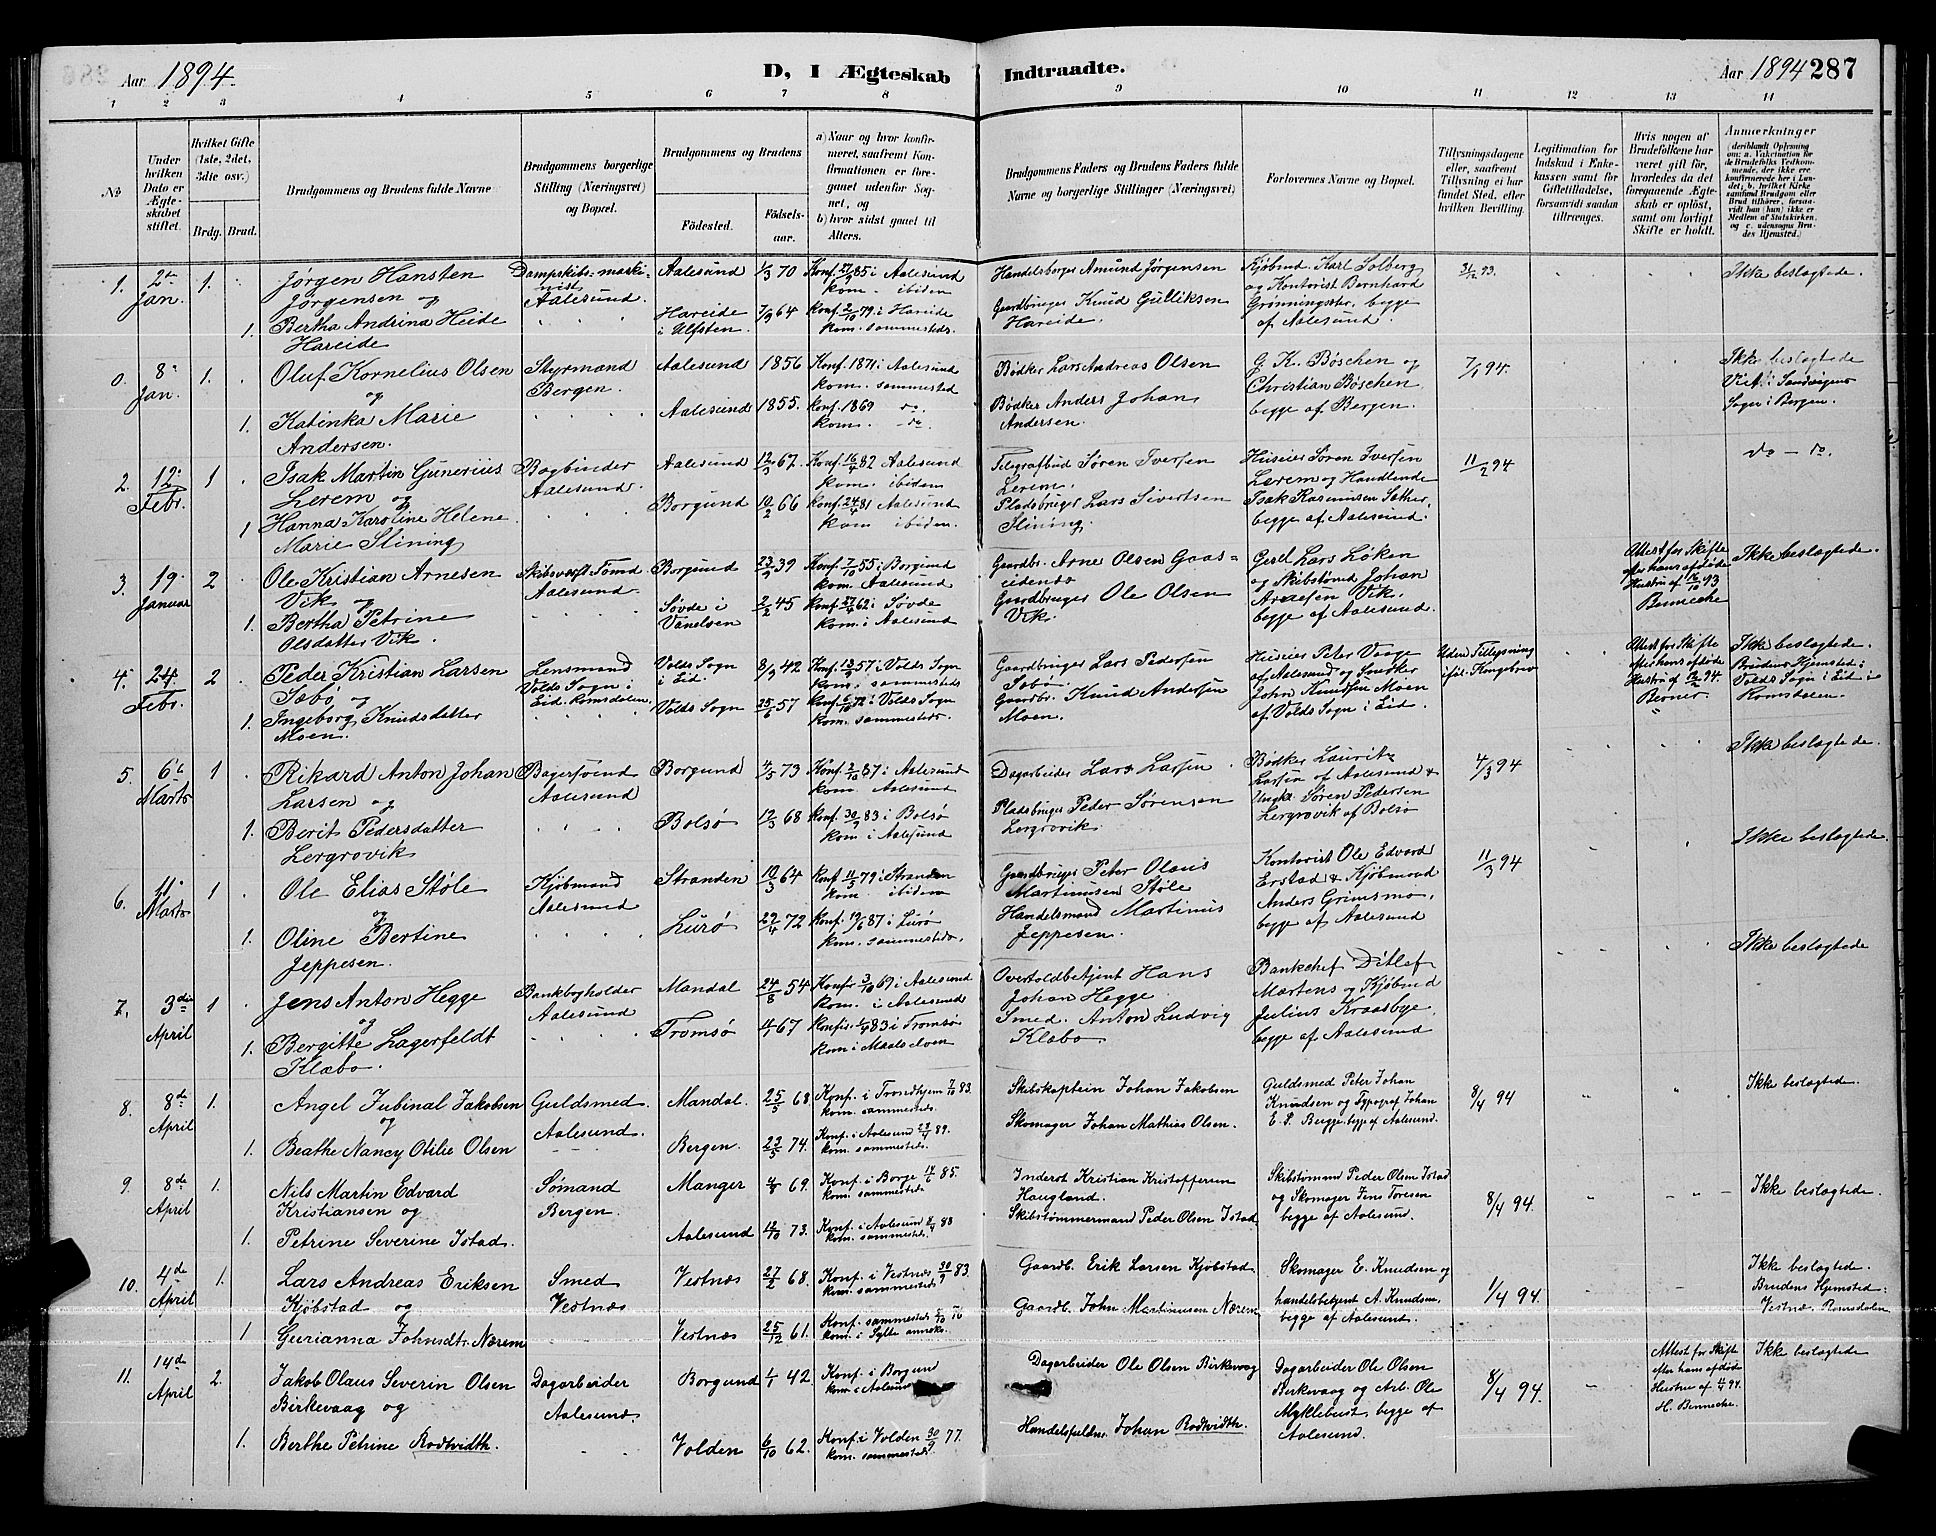 Aar 1894. D, I Ægteskab Indtraadte. Aar 1894 287
1 2 3 4 5 6 7 8 9 10 11 12 13 14
No
Under hvilken Dato er Ægteskabet stiftet.
Hvilket Gifte (1ste, 2det, 3dte osv.)
Brdg. Brud.
Brudgommens og Brudens fulde Navne
Brudgommens borgerlige Stilling (Næringsvei) og Bopæl.
Brudgommens og Brudens
Födested. Födselsaar.
a) Naar og hvor konfirmeret, saafremt Konfirmationen er foregaaet udenfor Sognet, og
b) hvor sidst gaaet til Alters.
Brudgommens Faders og Brudens Faders fulde Navne og borgerlige Stillinger (Næringsvei)
Forlovernes Navne og Bopæl.
Tillysningsdagene eller, saafremt Tillysning ei har fundet Sted, efter hvilken Bevilling.
Legitimation for Indskud i Enkekassen samt for Giftetilladelse, forsaavidt saadan tiltrænges.
Hvis nogen af Brudefolkene har været gift för, hvorledes da det foregaaende Ægteskab er oplöst, samt om lovligt Skifte er holdt.
Anmærkninger
(deriblandt Oplysning om: a. Vakcination for de Brudefolks Vedkommende, der ikke ere konfirmerede her i Landet; b. hvilket Kirkesamfund Brudgom eller Brud tilhörer, forsaavidt han (hun) ikke er Medlem af Statskirken, og c. udensogns Brudes Hjemsted.)
1. 2den Jan. 1.
Jørgen Hansten
Jørgensen og
1. Bertha Andrina Heide
Hareide
Dampskibs-maskinist
Aalesund.
Aalesund 1/3 70
Hareide i Ulfsten. 7/9 64
Konf. 27/9 85 i Aalesund
kom. ibidem
Konf. 2/10 79 i Hareide
kom. sammesteds.
Handelsborger Amund Jørgensen
Gaardbruger Knud Gulliksen
Hareide.
Kjøbmd. Karl Solberg
og Kontorist Bernhard
Grønningsæter, begge
af Aalesund.
31/12 93.
Ikke beslægtede.
0. 8. Jan. 1.
Oluf Kornelius Olsen
og
1. Katinka Marie
Andersen.
Styrmand
Bergen.
Aalesund 1856
Aalesund 1855.
Konf. 1871 i Aalesund
kom. sammested
Konf. 1869 do.
kom. - do
Bødker Lars Andreas Olsen
Bødker Anders Johan
Andersen.
G. K. Böschen og
Christian Böschen
begge af Bergen.
7/1 94.
Ikke beslægtede
Viet i Sandvigens
Sogn i Bergen.
2. 12. Febr. 1
Isak Martin Gunerius
Lerem og
1 Hanna Karoline Helene
Marie Slining
Bogbinder
Aalesund.
Aalesund 12/3 67.
Borgund 10/2 66
Konf. 16/4 82 Aalesund
kom. ibidem
Konf. 24/4 81 Aalesund
kom ibidem.
Telegrafbud Søren Iversen
Lerem.
Pladsbruger Lars Sivertsen
Slining.
Huseier Søren Iversen
Lerem og Handlende
Isak Rasmussen Sæther,
begge af Aalesund.
11/2 94
do - do.
3. 19. Januar 2
Ole Kristian Arnesen
Vik og
1. Bertha Petrine
Olsdatter Vik.
Skibsværft Tømd
Aalesund.
Borgund 23/9 39
Søvde i Vanelven 2/2 45
Konf. 7/10 55 i Borgund
kom. Aalesund
Konf. 27/4 62 i Søvde
kom. i Aalesund
Gaardbr. Arne Olsen Gaaseidenæs
Gaardbruger Ole Olsen
Vik.
Gesel Lars Løken
og Skibstømd Johan
Arnesen Vik,
begge af Aalesund.
Attest for Skifte
efter hans afdøde
Hustru af 16/12 93
Bennecke
Ikke beslægtede.
4. 24 Febr. 2
Peder Kristian Larsen
Sæbø og
1. Ingeborg Knudsdatter
Moen.
Lensmand
Volds Sogn i
Eid. Romsdalen.
Volds Sogn i Eid. 8/9 42
Volds Sogn 25/6 57
Konf. 13/9 57 i Volds Sogn
kom. sammesteds
Konf. 6/10 72 i Volds Sogn
kom. sammesteds.
Gaardbruger Lars Pedersen
Sæbø.
Gaardbr. Knud Andersen
Moen.
Huseier Peter Vaage
af Aalesund og Snedker
John Knudsen Moen
af Volds Sogn i Eid.
Uden Tillysning
iføl. Kongebrev
Attest for Skifte
efter hans afdøde
Hustru af 12/2 94.
Berner
Ikke beslægtede.
Brudens Hjemsted:
Volds Sogn i Eid i
Romsdalen.
5. 6te Marts 1
Rikard Anton Johan
Larsen og
1. Berit Pedersdatter
Lergrovik
Bagersvend
Aalesund
Borgund 4/5 73
Bolsø 12/3 68
Konf. 2/10 87 i Aalesund
kom. Aalesund
Konf. 30/9 83 i Bolsø
kom i Aalesund
Dagarbeider Lars Larsen
Pladsbruger Peder Sørensen
Lergrovik.
Bødker Lauritz
Larsen af Aalesund &
Ungkr Søren Pedersen
Lergrovik af Bolsø
4/3 94
Ikke beslægtede.
6. 11. Marts 1
Ole Elias Støle
og
1. Oline Bertine
Jeppesen.
Kjøbmand
Aalesund
Stranden 10/3 64
Lurø 29/4 72
Konf. 11/5 79 i Stranden
kom ibidem
Konf. 19/6 87 i Lurø
kom. sammesteds.
Gaardbruger Peter Olaus
Martinusen Støle
Handelsmand Martinus
Jeppesen.
Kontorist Ole Edvard
Erstad & Kjøbmand
Anders Grimsmo,
begge af Aalesund
11/3 94
Ikke beslægtede.
7. 3die April 1
Jens Anton Hegge
og
1. Bergitte Lagerfeldt
Klæbo.
Bankbogholder
Aalesund
Mandal 24/8 54
Tromsø 4/1 67
Konfir. 3/10 69 i Aalesund
kom. i Aalesund
Konfir. 1/4 83 i Tromsø
kom i Maalselven
Overtoldbetjent Hans
Johan Hegge
Smed. Anton Ludvig
Klæbo
Bankchef Ditlef
Martens og Kjøbmd
Julius Kraasbye,
begge af Aalesund
Ikke beslægtede
8. 8de April 1.
Angel Jubinal Jakobsen
og
1. Beathe Nancy Otilie Olsen
Guldsmed.
Aalesund.
Mandal. 25/5 68
Bergen. 23/5 74.
Konf. i Trondhjem 7/10 83.
kom. sammesteds.
Konf. i Aalesund 23/4 89.
kom. sammesteds.
Skibskaptein Johan Jakobsen
Skomager Johan Mathias Olsen.
Guldsmed Peter Johan
Knudsen og Typograf Johan
E. S. Bergge, begge af Aalesund.
8/4 94
Ikke beslægtede.
9. 8de April 1.
Nils Martin Edvard
Kristiansen og
1. Petrine Severine Istad.
Sømand
Bergen.
Manger 4/8 69.
Aalesund 12/10 73.
Konf. i Borge 14/6 85.
kom. sammesteds
Konf. i Aalesund 8/4 88
kom. sammesteds.
Inderst Kristian Kristoffersen
Haugland.
Skibstømmermand Peder Olsen Istad
Skibstømmd Peder Olsen Istad
og Skomager Jens Toresen
begge af Aalesund.
8/4 94.
Ikke beslægtede.
10. 4de April 1.
Lars Andreas Eriksen
Kjøbstad og
1 Gurianna Johnsdtr. Nærem
Smed
Vestnæs
Vestnæs 27/2 68.
Vestnæs 25/12 61.
Konf. i Vestnæs 30/9 83.
kom. sammesteds
Konf. sammesteds 8/10 76
kom. i Sylte anneks.
Gaardb. Erik Larsen Kjøbstad.
Gaardb. John Martinusen Nærem
Skomager E. Knudsen og
handelsbetjent A. Knudsen,
begge af Aalesund.
1/4 94.
Ikke beslægtede
Brudens Hjemsted:
Vestnæs, Romsdalen
11. 14de April 2.
Jakob Olaus Severin Olsen
Birkevaag og
1. Berthe Petrine Rodtvidth.
Dagarbeider
Aalesund
Borgund 1/1 42.
Volden 6/10 62.
Konf. i Borgund
kom. i Aalesund
Konf. i Volden 30/9 77.
kom. sammesteds
Dagarbeider Ole Olsen Birkevaag
Handelsfuldm. Johan Rodtvidth.
Dagarbeider Ole Olsen
Birkevaag og Arb. Ole
Myklebust, begge af
Aalesund.
8/4 94.
Attest for Skifte
efter hans afdøde
Hustru af 11/4 94.
H. Bennecke.
Ikke beslægtede